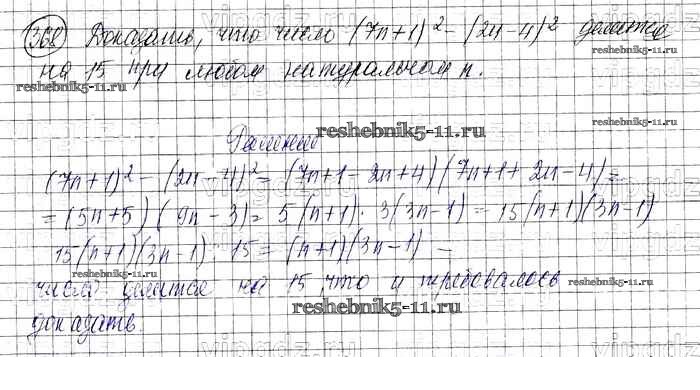 368 Доказать, что число (7n+1)² - (2n-4)² делится
на 15 при любом натуральном n.
reshebnik5-11.ru
reshebnik5-11.ru
Решение
reshebnik5-11.ru
(7n+1)² - (2n-4)² = (7n+1-2n+4)(7n+1+2n-4) =
= (5n+5)(9n-3) = 5(n+1)·3(3n-1) = 15(n+1)(3n-1)
15(n+1)(3n-1) : 15 = (n+1)(3n-1) —
reshebnik5-11.ru
число делится на 15, что и требовалось
reshebnik5-11.ru
доказать.